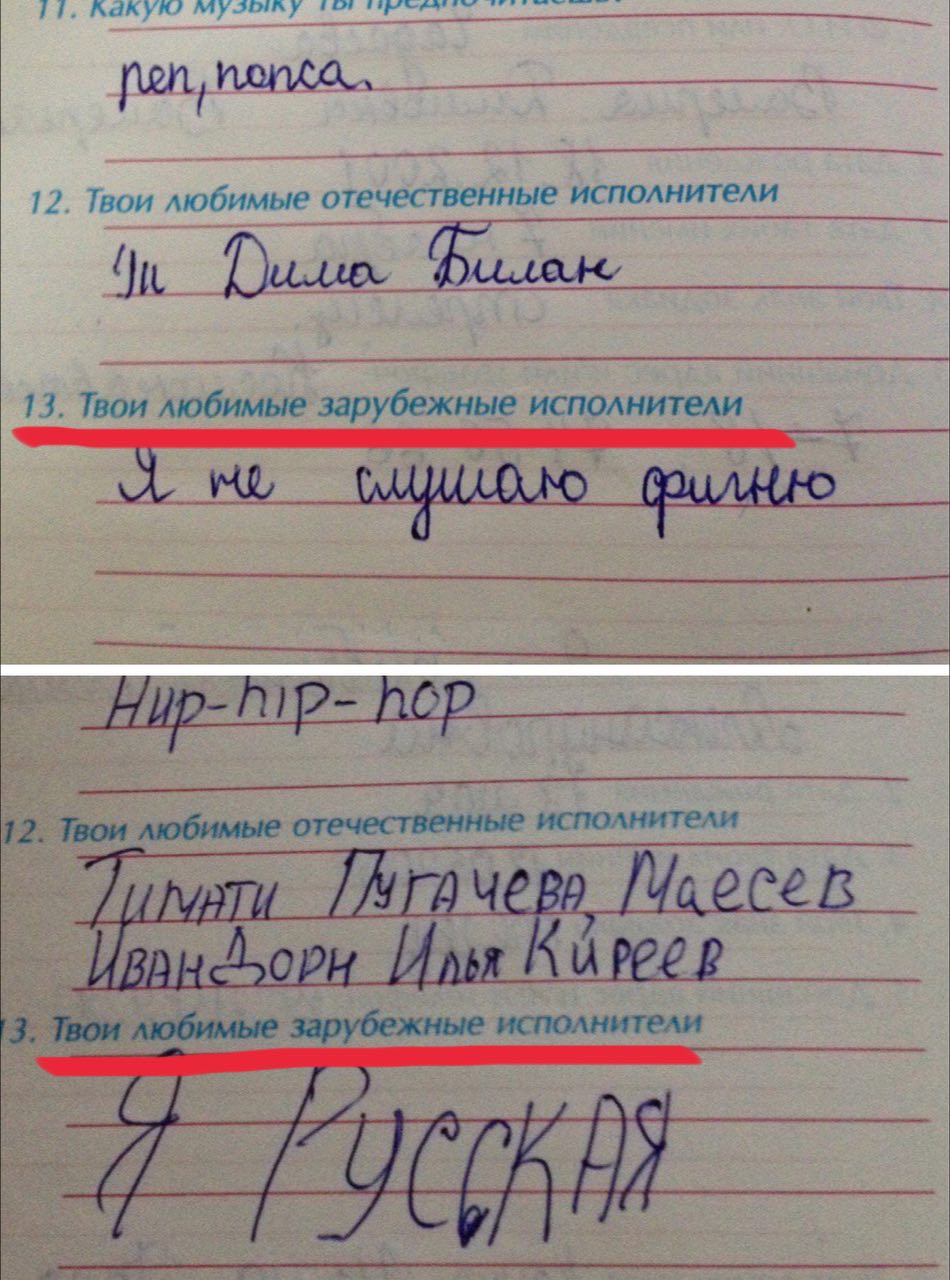 11. Какую музыку ты предпочитаешь?
реп, попса.
12. Твои любимые отечественные исполнители
Дима Билан
13. Твои любимые зарубежные исполнители
Я не слушаю фигню
Hup-hip-hop
12. Твои любимые отечественные исполнители
Тимати Пугачева, Маесев
Иван Дорн Илья Киреев
13. Твои любимые зарубежные исполнители
Я РУССКАЯ